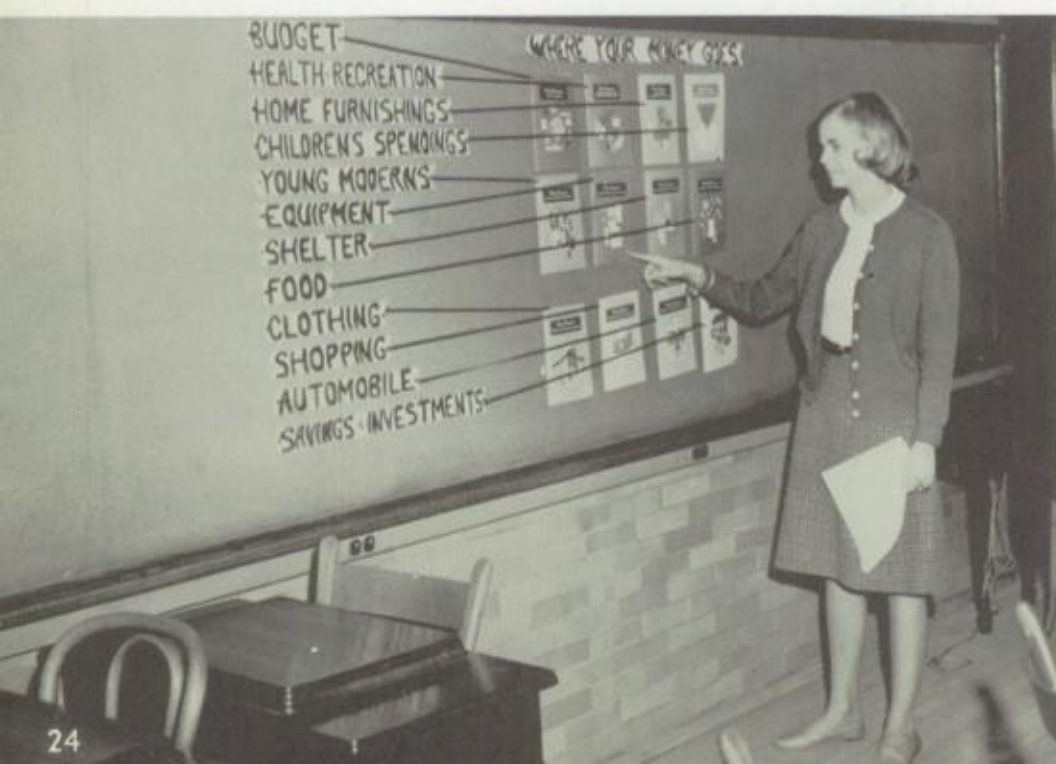 BUDGET
HEALTH-RECREATION
HOME FURNISHINGS
CHILDRENS SPENDINGS
YOUNG MODERNS
EQUIPMENT
SHELTER
FOOD
CLOTHING
SHOPPING
AUTOMOBILE
SAVINGS-INVESTMENTS
WHERE YOUR MONEY GOES
24